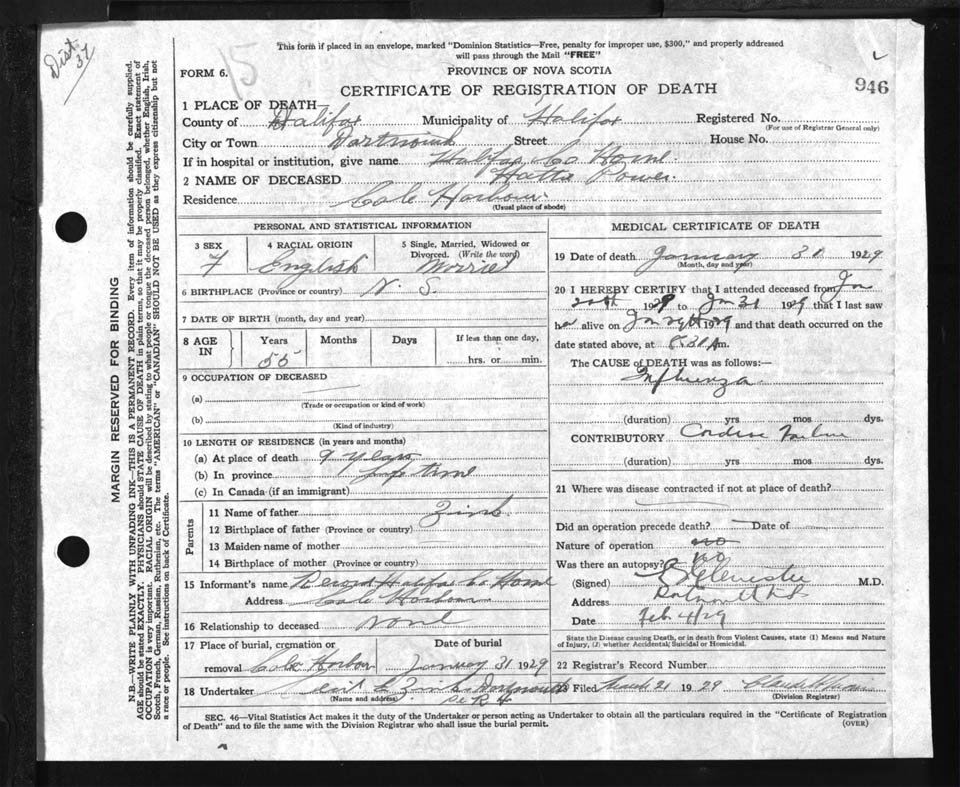 Dist. 37
15
This form if placed in an envelope, marked "Dominion Statistics—Free, penalty for improper use, $300," and properly addressed
will pass through the Mail "FREE"
FORM 6.
PROVINCE OF NOVA SCOTIA
946
CERTIFICATE OF REGISTRATION OF DEATH
1 PLACE OF DEATH
County of Halifax Municipality of Halifax Registered No.
(For use of Registrar General only)
City or Town Dartmouth Street House No.
If in hospital or institution, give name Halifax Co Home
2 NAME OF DECEASED Power
Residence Cole Harbour
(Usual place of abode)
PERSONAL AND STATISTICAL INFORMATION
3 SEX F
4 RACIAL ORIGIN English
5 Single, Married, Widowed or Divorced. (Write the word)
6 BIRTHPLACE (Province or country) N. S.
7 DATE OF BIRTH (month, day and year)
8 AGE IN Years 55 Months Days If less than one day, hrs. or min.
9 OCCUPATION OF DECEASED
(a)
(Trade or occupation or kind of work)
(b)
(Kind of industry)
10 LENGTH OF RESIDENCE (in years and months)
(a) At place of death 9 years
(b) In province life time
(c) In Canada (if an immigrant)
Parents
11 Name of father Zink
12 Birthplace of father (Province or country)
13 Maiden name of mother
14 Birthplace of mother (Province or country)
15 Informant's name Record Halifax Co Home
Address Cole Harbour
16 Relationship to deceased None
17 Place of burial, cremation or removal Cole Harbour
Date of burial January 31 1929
18 Undertaker Zink Dartmouth
(Name and address)
MEDICAL CERTIFICATE OF DEATH
19 Date of death January 31 1929
(Month, day and year)
20 I HEREBY CERTIFY that I attended deceased from Jan
1929 to Jan 31 1929 that I last saw
her alive on Jan 1929 and that death occurred on the
date stated above, at 8.30 Am.
The CAUSE of DEATH was as follows:—
Influenza
(duration) yrs mos dys.
CONTRIBUTORY Cardiac Failure
(duration) yrs mos dys.
21 Where was disease contracted if not at place of death?
Did an operation precede death? Date of
Nature of operation no
Was there an autopsy? no
(Signed) M.D.
Address Dartmouth
Date Feb 4/29
State the Disease causing Death, or in death from Violent Causes, state (1) Means and Nature
of Injury, (2) whether Accidental, Suicidal or Homicidal.
22 Registrar's Record Number
23 Filed March 21 1929
(Division Registrar)
SEC. 46—Vital Statistics Act makes it the duty of the Undertaker or person acting as Undertaker to obtain all the particulars required in the "Certificate of Registration
of Death" and to file the same with the Division Registrar who shall issue the burial permit.
(OVER)
MARGIN RESERVED FOR BINDING
N.B.—WRITE PLAINLY WITH UNFADING INK—THIS IS A PERMANENT RECORD. Every item of information should be carefully supplied.
AGE should be stated EXACTLY. PHYSICIANS should STATE CAUSE OF DEATH in plain terms, so that it may be properly classified. Exact statement of
OCCUPATION is very important. RACIAL ORIGIN will be described by stating to what people or tongue the deceased person belonged, whether English, Irish,
Scotch, French, German, Russian, Ruthenian, etc. The terms "AMERICAN" or "CANADIAN" SHOULD NOT BE USED as they express citizenship but not
a race or people. See instructions on back of Certificate.